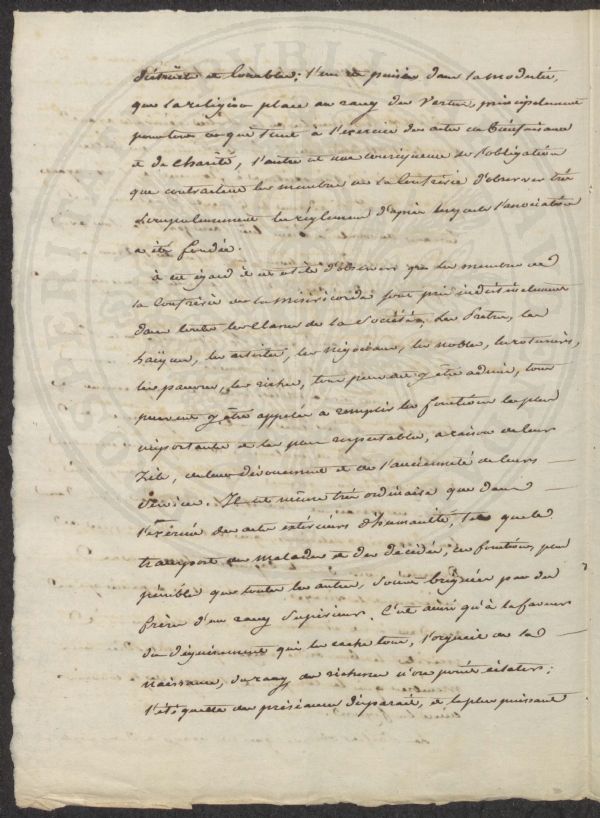 distincts et louables; l'un est puisé dans la modestie,
que la religion place au rang des vertus, principalement
pour tout ce que tient à l'exercice des actes de bienfaisance
et de charité, l'autre est une conséquence de l'obligation
que contractent les membres de la Confrérie d'observer très
scrupuleusement les règlemens d'après lesquels l'association
a été fondée.
à cet égard il est utile d'observer que les membres de
la Confrérie de la Miséricorde sont pris indistinctement
dans toutes les classes de la Société. Les Prêtres, les
Laïques, les artistes, les négocians, les nobles, les roturiers,
les pauvres, les riches, tous peuvent y être admis, tous
peuvent y être appelés à remplir les fonctions les plus
importantes et les plus respectables, à raison de leur
Zèle, de leur dévouement et de l'ancienneté de leurs
services. Il est même très ordinaire que dans
l'exercice des actes extérieurs d'humanité, tels que le
transport des malades et des décédés, ces fonctions, plus
pénibles que toutes les autres, soient briguées par des
frères d'un rang supérieur. C'est ainsi qu'à la faveur
du déguisement qui les cache tous, l'orgueil de la
naissance, du rang, des richesses n'ose point éclater;
l'étiquette des préséances disparait, et le plus puissant